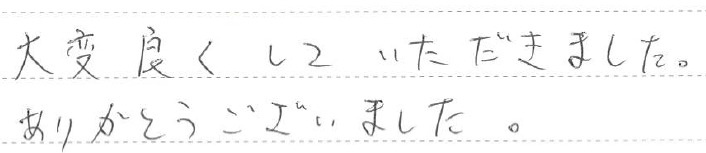 大変良くしていただきました。
ありがとうございました。